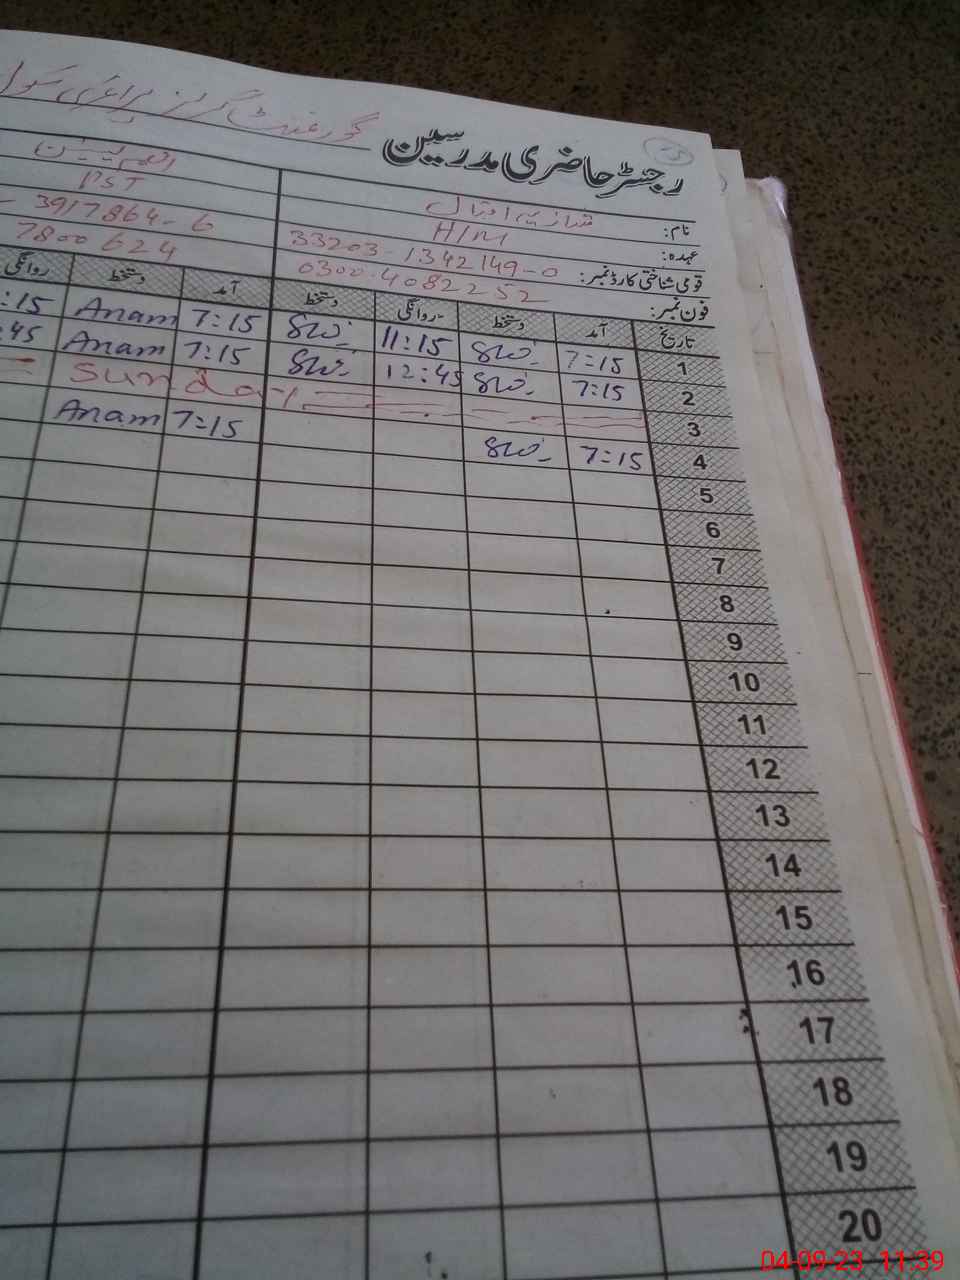 گورنمنٹ گرلز پرائمری سکول
رجسٹر حاضری مدرسین
نام: شازیہ اقبال
عہدہ: H/M PST
قومی شناختی کارڈ نمبر: 33203-1342149-0 3917864-6
فون نمبر: 0300-4082252 7800624
تاریخ آمد دستخط روانگی دستخط آمد دستخط روانگی
1 7:15 11:15 7:15 Anam :15
2 7:15 12:45 7:15 Anam :45
3 Sunday
4 7:15 7:15 Anam
5
6
7
8
9
10
11
12
13
14
15
16
17
18
19
20
04-09-23 11:39